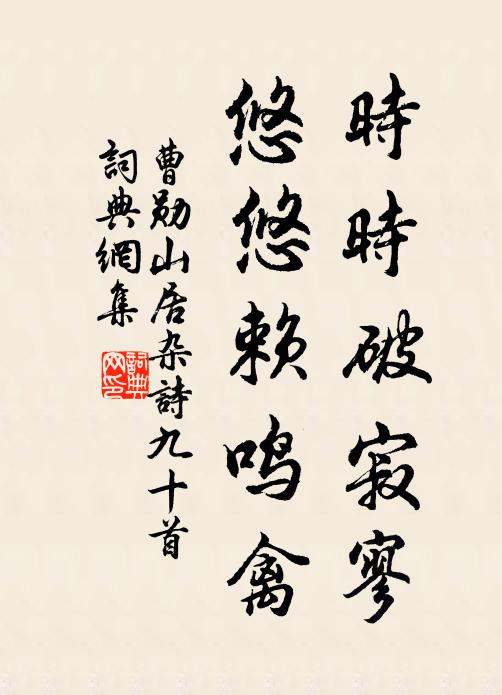 時時破寂寥
悠悠赖鸣禽
曹勋山居杂詩九十首
詞典網集
詞典网印